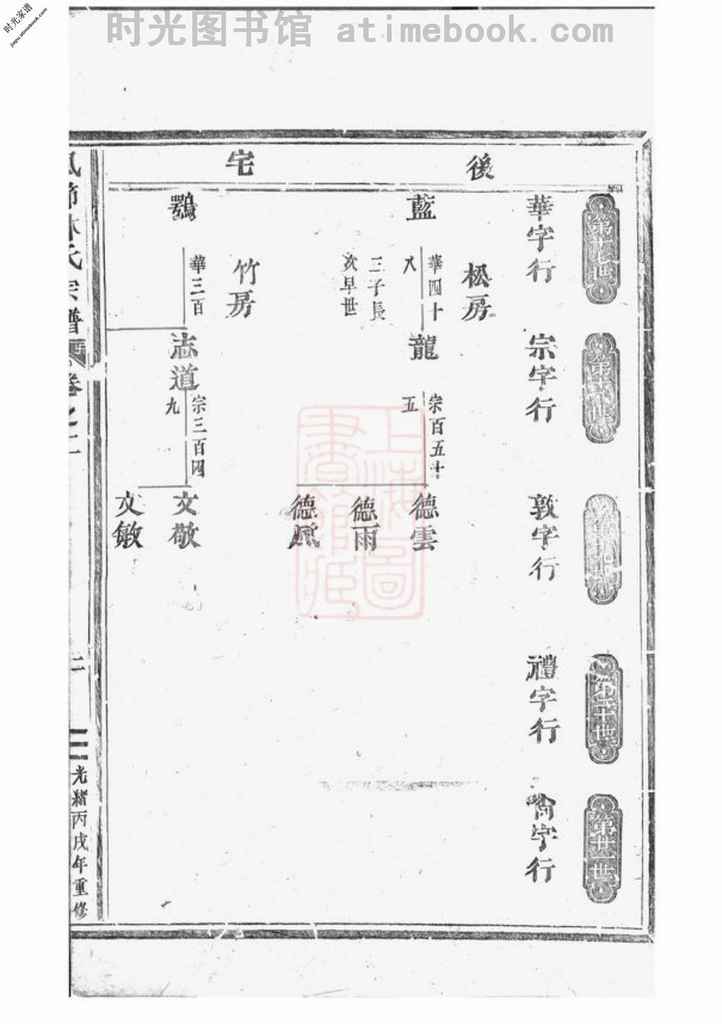 时光家谱
jiapu.atimebook.com
时光图书馆 atimebook.com
後宅
第十七世
華字行
第十八世
宗字行
敦字行
第二十世
禮字行
第廿一世
尚字行
松房
藍
華四十
八
三子長
次早世
龍
宗百五十
五
德雲
德雨
德風
竹房
鶚
華三百
志道
宗三百四
九
文敬
文敏
林氏宗譜
卷之二
二
光緒丙戌年重修
上海圖書館藏